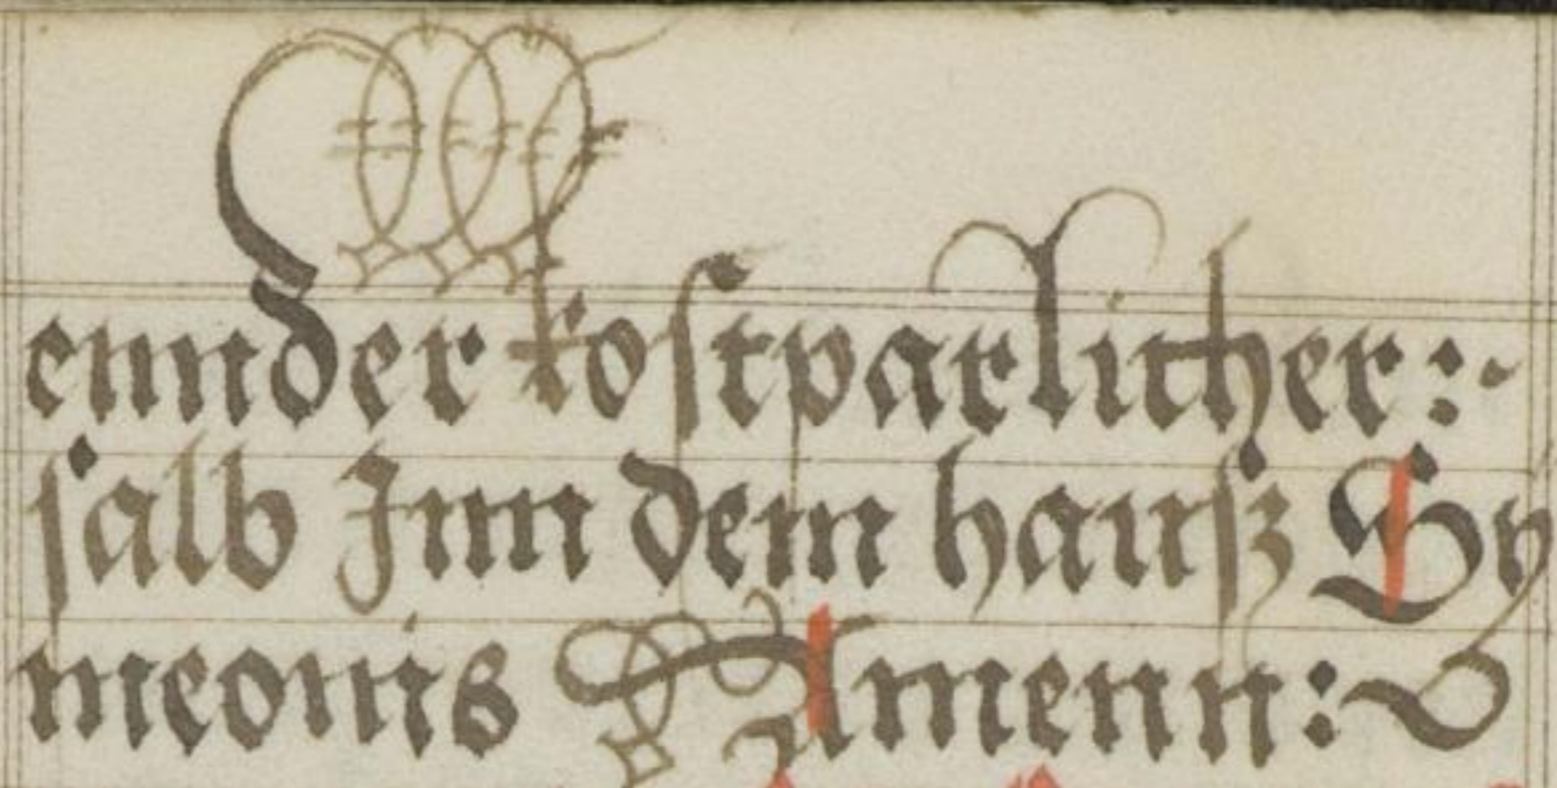 ennder kostparlicher :·
salb Jnn dem hausz Sy
meonis Amenn :